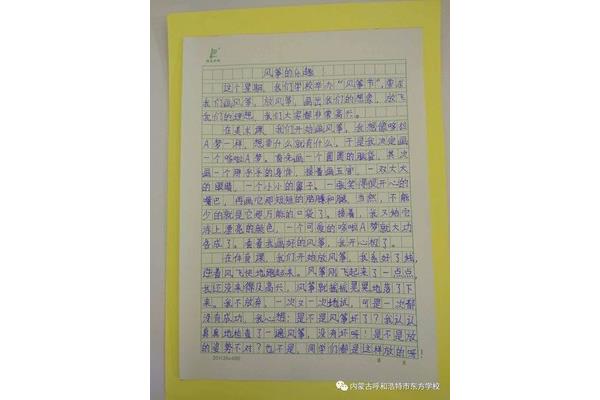 风筝的乐趣
这个星期,我们学校举办“风筝节”,要求
我们画风筝,放风筝,画出我们的想象,放飞
我们的理想,我们大家都非常高兴。
在美术课,我们开始画风筝,我想像哆啦
A梦一样,想要什么就有什么,于是我决定画
一个哆啦A梦。首先画一个圆圆的脑袋,其次
画一个胖乎乎的身体,接着画五官,一双大大
的眼睛,一个小小的鼻子,一张笑得很开心的
嘴巴,再画它那短短的胳膊和腿,当然,不能
少的就是它那万能的口袋了。接着,我又给它
涂上漂亮的颜色,一个可爱的哆啦A梦就大功
告成了。看着我画好的风筝,我开心极了。
在体育课,我们开始放风筝,我系好了线,
迎着风飞快地跑起来。风筝刚飞起来了一点点,
我还没来得及高兴,风筝就摇摇晃晃地落了下
来。我不放弃,一次又一次地试,可是一次都
没有成功,我心想:是不是风筝坏了?我认认
真真地检查了一遍风筝,没有坏呀!是不是放
的姿势不对?也不是,同学们都是这样放的呀!
内蒙古呼和浩特市东方学校